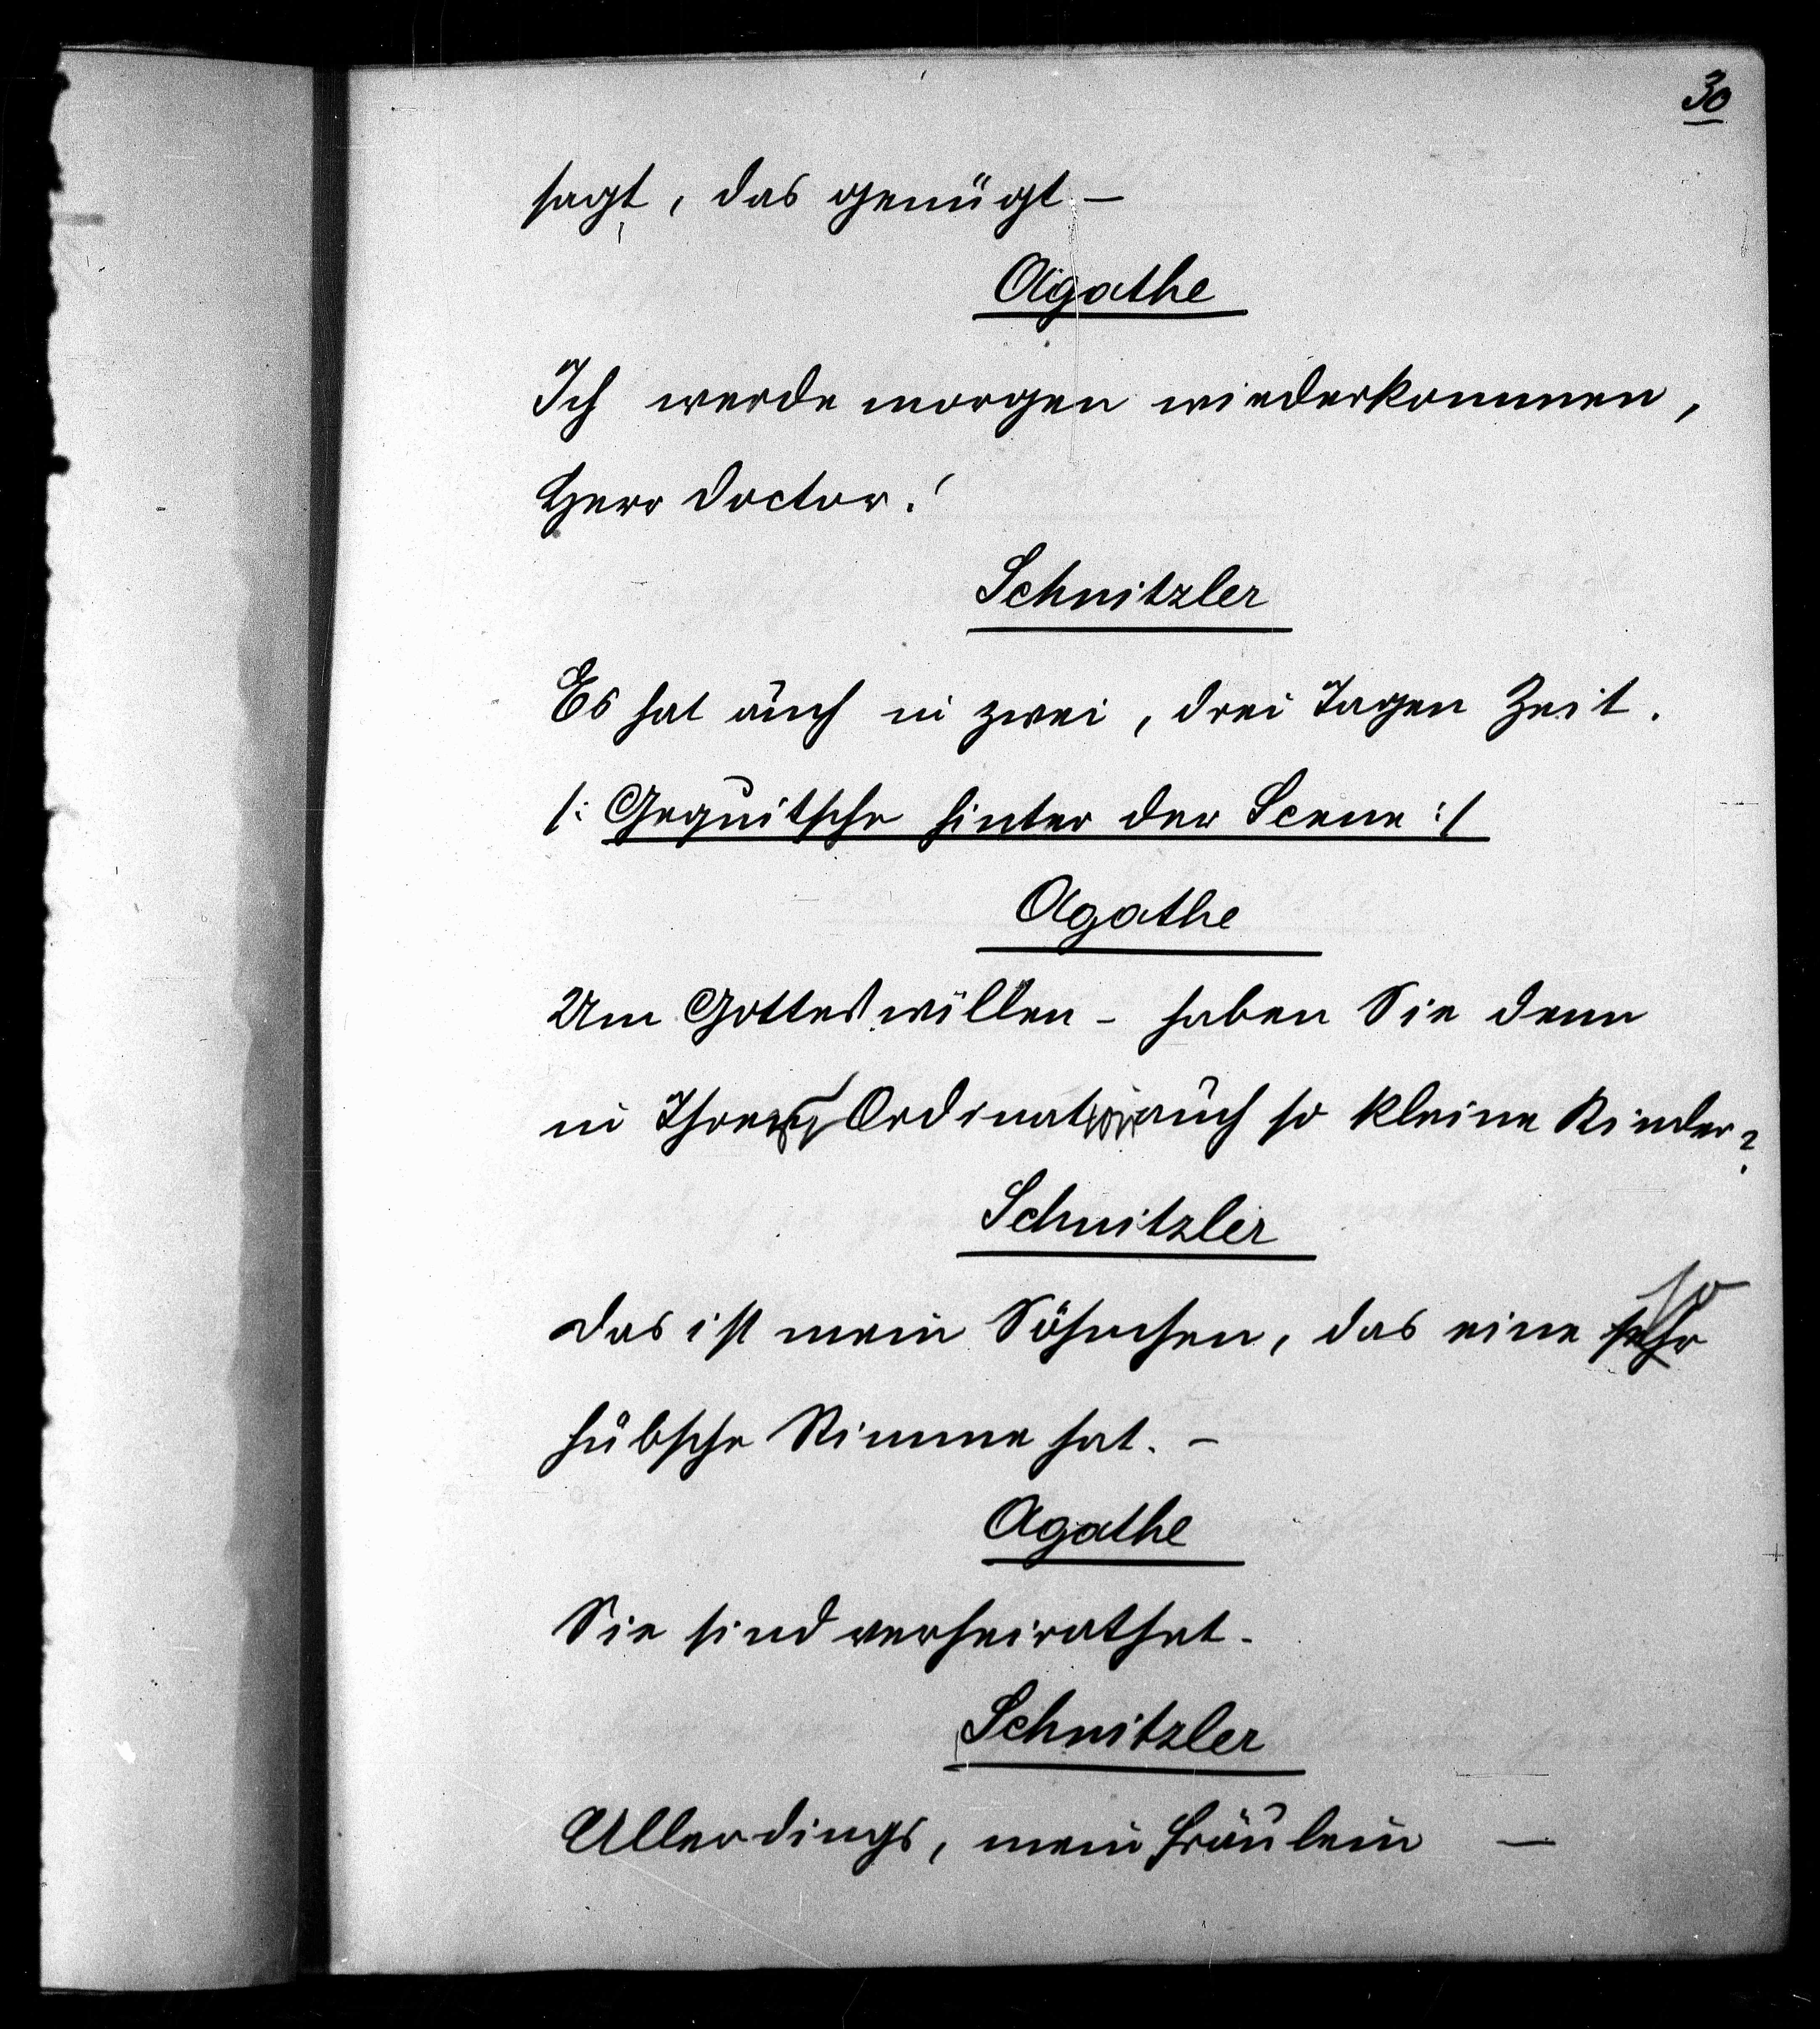 30
sagt, das genügt. –
Agathe
Ich werde morgen wiederkommen,
Herr Doctor!
Schnitzler
Es hat auch in zwei, drei Tagen Zeit.
/: Gequitsche hinter der Scene :/
Agathe
Um Gotteswillen – haben Sie denn
in Ihrer Ordination auch so kleine Kinder?
Schnitzler
Das ist mein Söhnchen, das eine sehr so
hübsche Stimme hat. –
Agathe
Sie sind verheirathet.
Schnitzler
Allerdings, mein Fräulein –